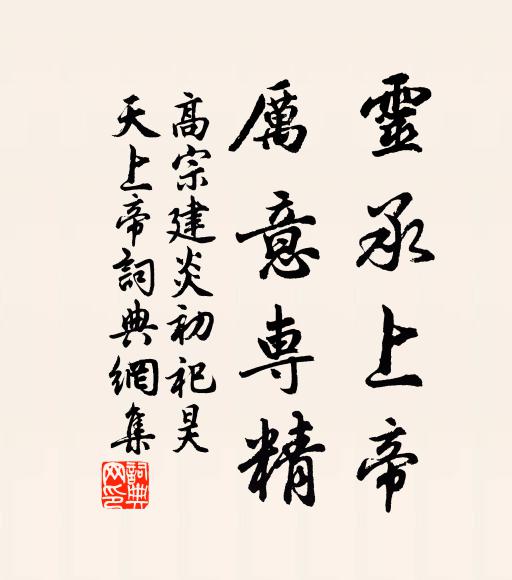 靈承上帝
厲意專精
高宗建炎初祀昊
天上帝詞典網集
詞典網印